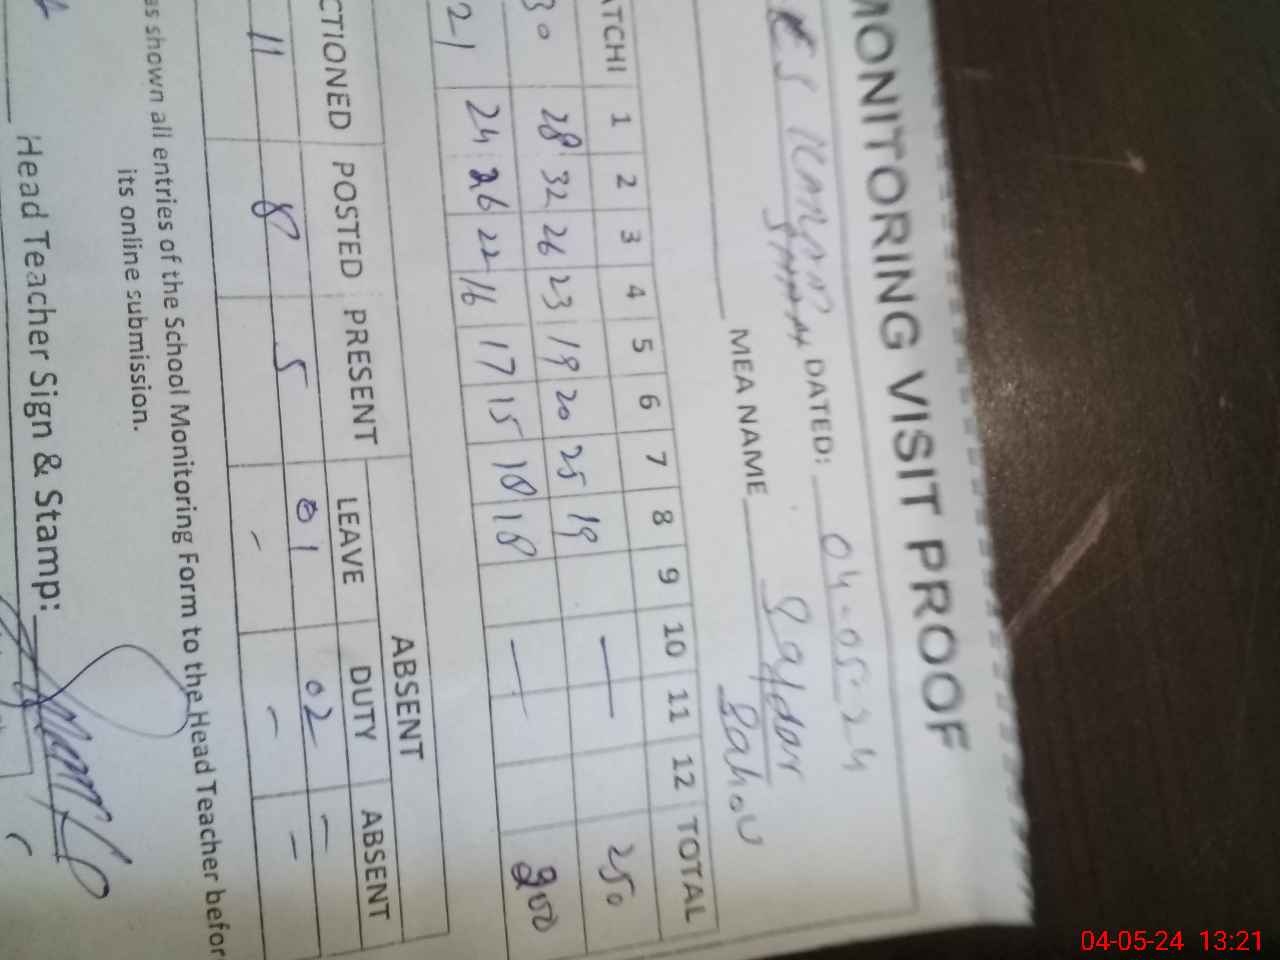 MONITORING VISIT PROOF
DATED: 04-05-24
MEA NAME Safdar
Sahou
ATCHI 1 2 3 4 5 6 7 8 9 10 11 12 TOTAL
30 28 32 26 23 19 20 25 19 — 250
21 24 26 22 16 17 15 18 18 — 200
ABSENT
CTIONED POSTED PRESENT LEAVE DUTY ABSENT
11 8 5 01 02 -
- - -
as shown all entries of the School Monitoring Form to the Head Teacher befor
its online submission.
Head Teacher Sign & Stamp:
04-05-24 13:21